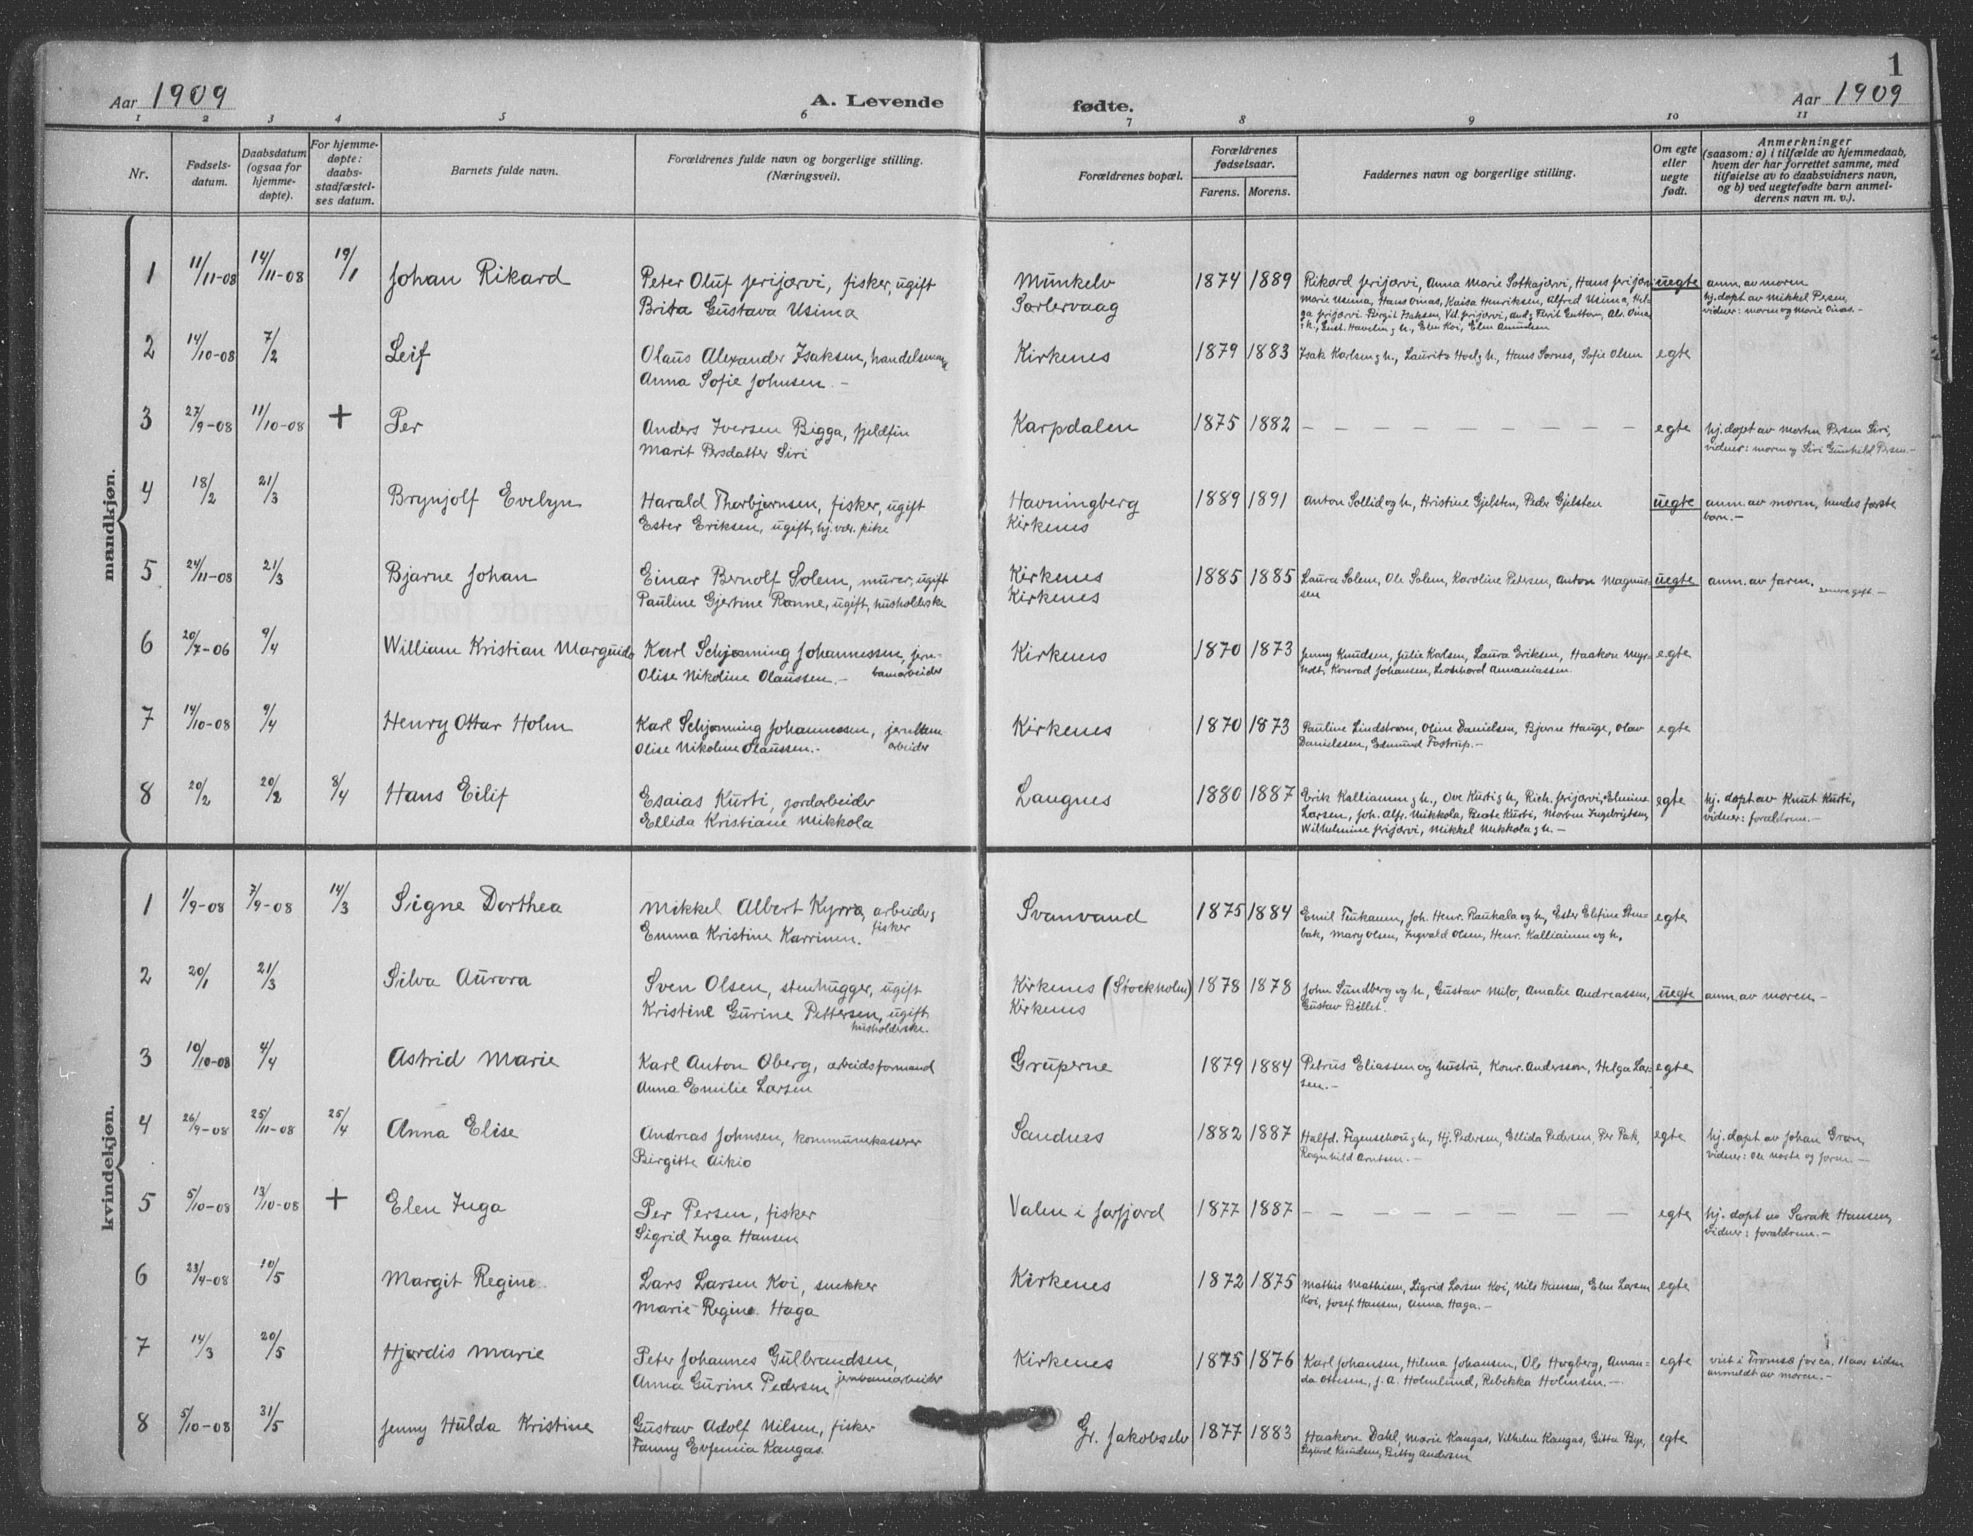 1
Aar 1909 A. Levende fødte. Aar 1909
1 2 3 4 5 6 7 8 9 10 11
Nr. Fødsels-datum. Daabsdatum (ogsaa for hjemme-døpte). For hjemme-døpte: daabs-stadfæstel-ses datum. Barnets fulde navn. Forældrenes fulde navn og borgerlige stilling. (Næringsvei). Forældrenes bopæl. Forældrenes fødselsaar. Farens. Morens. Faddernes navn og borgerlige stilling. Om egte eller uegte født. Anmerkninger (saasom: a) i tilfælde av hjemmedaab, hvem der har forrettet samme, med tilføielse av to daabsvidners navn, og b) ved uegtefødte barn anmel-derens navn m. v.).
mandkjøn.
1 11/11-08 14/11-08 19/1 Johan Rikard Peter Oluf Jerijærvi, fisker, ugift Munkelv 1874 1889 Rikard Jerijærvi, Anna Marie Sotkajærvi, Hans Jerijærvi uegte anm. av moren
Brita Gustava Usima Sørlervaag Marie Usima, Hans Oinas, Kaisa Henriksen, Alfred Usima, Hel- hj. døpt av Mikkel Persen,
vidner: moren og Marie Oinas.-
2 14/10-08 7/2 Leif Olaus Alexander Isaksen, handelsmann Kirkenes 1879 1883 Isak Karlsen g h., Laurits Hoel g h., Hans Sørnes, Sofie Olsen egte
Anna Sofie Johnsen.-
3 27/9-08 11/10-08 + Per Anders Iversen Bigga, fjeldfin Karpdalen 1875 1882 — — — — — — — — egte hj. døpt av Morten Persen Siri,
Marit Persdatter Siri vidner: moren og Siri Gunhild Persen.-
4 18/2 21/3 Brynjolf Evelyn Harald Thorbjørnsen, fisker, ugift Havningberg 1889 1891 Anton Sollid og h., Kristine Gjelsten, Peder Gjelsten uegte anm. av moren, hendes første
Ester Eriksen, ugift, hj. vær. pike Kirkenes barn.-
5 24/11-08 21/3 Bjarne Johan Einar Bernolf Solem, murer, ugift Kirkenes 1885 1885 Laura Solem, Ole Solem, Karoline Petersen, Anton Magnus- uegte anm. av faren.
Pauline Gjertine Rønne, ugift, husholderske Kirkenes sen senere gift.-
6 20/7-06 9/4 William Kristian Marguido Karl Schjønning Johannessen, jern- Kirkenes 1870 1873 Jenny Knudsen, Julie Karlsen, Laura Eriksen, Haakon Myr- egte
Olise Nikoline Olaussen.- banearbeider Konrad Johansen, Leonhard Annaniassen
7 14/10-08 9/4 Henry Ottar Holm Karl Schjønning Johannessen, jernbane Kirkenes 1870 1873 Pauline Lindstrøm, Oline Danielsen, Bjarne Hauge, Olav egte
Olise Nikoline Olaussen.- arbeider Danielssen, Edmund Fostrup.-
8 20/2 20/2 8/4 Hans Eilif Esaias Kurti, jordarbeider Langnes 1880 1887 Erik Kalliainen g h., Ove Kurti g h, Rich. Jerijærvi, Elmine egte hj. døpt av Knut Kurti,
Ellida Kristiane Mikkola Larsen, Joh. Alfr. Mikkola, Beate Kurti, Morten Ingebrigtsen, vidner: forældrene.-
Wilhelmine Jerijærvi, Mikkel Mikkola g h.-
kvindekjøn.
1 1/9-08 7/9-08 14/3 Signe Dorthea Mikkel Albert Kyrrø, arbeider, Svanvand 1875 1884 Emil Joh. Henr. Raukala og h, Ester Elfine Sten- egte
Emma Kristine Karrinen. fisker bak, Mary Olsen, Ingvald Olsen, Henr. Kalliainen og h,
2 20/1 21/3 Silva Aurora Sven Olsen, stenhugger, ugift Kirkenes (Stockholm) 1878 1878 John Sundberg og h, Gustav Milo, Amalie Andreassen, uegte anm. av moren.-
Kristine Gurine Pettersen, ugift Kirkenes Gustav Billet.
husholderske.
3 10/10-08 4/4 Astrid Marie Karl Anton Øberg, arbeidsformand Gruperne 1879 1884 Petrus Eliassen og hustru, Konr. Andersson, Helga Lar- egte
Anna Emilie Larsen sen.-
4 26/9-08 25/11-08 25/4 Anna Elise Andreas Johnsen, kommunekasserer Sandnes 1882 1887 Halfd. Figenschou g h., Hj. Pedersen, Ellida Pedersen, Per Pak, egte hj. døpt av Johan Grøn,
Birgitte Aikio Ragnhild Arntsen.- vidner: Ole Norte og faren.-
5 5/10-08 13/10-08 + Elen Inga Per Persen, fisker Valen i Jarfjord 1877 1887 — — — — — — — — egte hj. døpt av Sarak Hansen,
Sigrid Inga Hansen vidner: forældrene.-
6 23/4-08 10/5 Margit Regine Lars Larsen Koi, snekker Kirkenes 1872 1875 Mathis Mathisen, Sigrid Larsen Koi, Nils Hansen, Elen Larsen egte
Marie Regine Haga Koi, Josef Hansen, Anna Haga.-
7 14/3 20/5 Hjørdis Marie Peter Johannes Gulbrandsen, Kirkenes 1875 1876 Karl Johansen, Hilma Johansen, Ole Høgberg, Aman- egte viet i Tromsø for ca. 11 aar siden
Anna Gurine Pedersen jernbanearbeider da Ottesen, J. A. Holmlund, Rebekka Holmsen.- anmeldt av moren.-
8 5/10-08 31/5 Jenny Hulda Kristine Gustav Adolf Nilsen, fisker Gr. Jakobselv 1877 1883 Haakon Dahl, Marie Kangas, Vilhelm Kangas, Gitta Bye, egte
Fanny Evfemia Kangas. Sigurd Knudsen, Betty Andersen